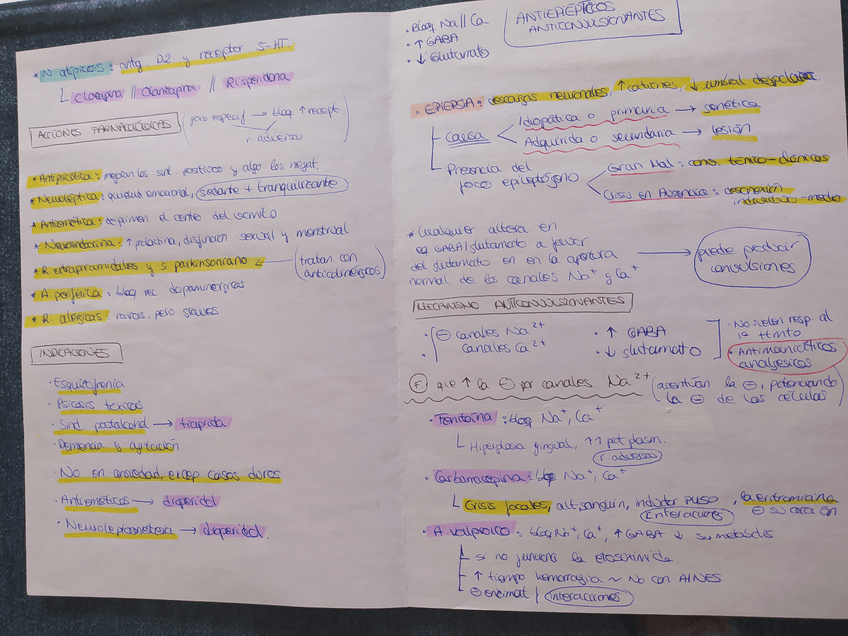 * N atípicos: antg D2 y receptor 5-HT.
└ Clozapina // Olanzapina // Risperidona
ACCIONES FARMACOLÓGICAS
(poco especif → bloq ↑ recept.
r adversas)
* Antipsicótica: mejoran los sínt. positivos y algo los negat.
* Neuroléptica: quietud emocional, sedante + tranquilizante
* Antiemética: deprimen el centro del vómito
* Neuroendocrina: ↑ prolactina, disfunción sexual y menstrual
* R extrapiramidales y s parkinsoniano ← (tratan con
anticolinérgicos)
* A periférica: bloq rec. dopaminérgicos
* R alérgicas: raras, pero graves
INDICACIONES
· Esquizofrenia
· Psicosis tóxicas
· Sind postalcohol → tiaprida
· Demencia y agitación
· No en ansiedad, excep casos duros
· Antieméticos → droperidol
· Neuroleptoanestesia → droperidol.
ANTIEPILÉPTICOS
ANTICONVULSIONANTES
· Bloq Na // Ca
· ↑ GABA
· ↓ Glutamato
* EPILEPSIA: descargas neuronales, ↑ cationes, ↓ umbral despolariz
Causa
Idiopática o primaria → genética
Adquirida o secundaria → lesión
Presencia del
foco epileptógeno
Gran Mal: conv. tónico-clónicas
Crisis en Ausencias: desconexión
individuo-medio
* Cualquier altera en
eq GABA/glutamato a favor
del glutamato en en la apertura
normal de los canales Na⁺ y Ca⁺
→ puede producir
convulsiones
MECANISMO ANTICONVULSIONANTES
· ⊖ canales Na²⁺
canales Ca²⁺
· ↑ GABA
· ↓ glutamato
· No suelen resp. al
1º ttmto
· Antimaniacéticos
analgésicos
Ⓕ que ↑ la ⊖ por canales Na²⁺ (acentúan la ⊖, potenciando
la ⊖ de las células)
· Fenitoína: bloq Na⁺, Ca⁺
└ Hiperplasia gingival, ↑↑ pot plasm.
r. adversas
· Carbamacepina: bloq Na⁺, Ca⁺
└ Crisis focales, alt. sanguin, inductor P450, la eritromicina
Interacciones ⊖ su acción
· A valproico: bloq Na⁺, Ca⁺, ↑ GABA ↓ su metabolis
si no funciona la etosuximida
↑ tiempo hemorragia ~ No con AINES
⊖ enzimat | interacciones